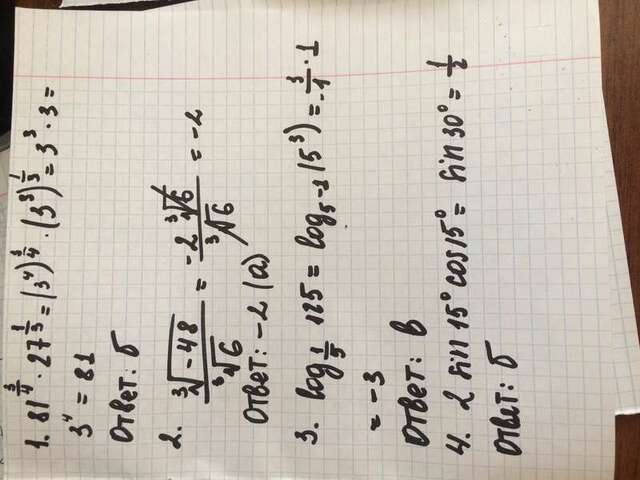 1. 81^{3/4} · 27^{1/3} = (3^4)^{3/4} · (3^3)^{1/3} = 3^3 · 3 =
3^4 = 81
Ответ: б
2. ∛(-48) / ∛6 = -2 ∛6 / ∛6 = -2
Ответ: -2 (а)
3. log_{1/5} 125 = log_{5^{-1}} (5^3) = 3/-1 · 1
= -3
Ответ: в
4. 2 sin 15° cos 15° = sin 30° = 1/2
Ответ: б